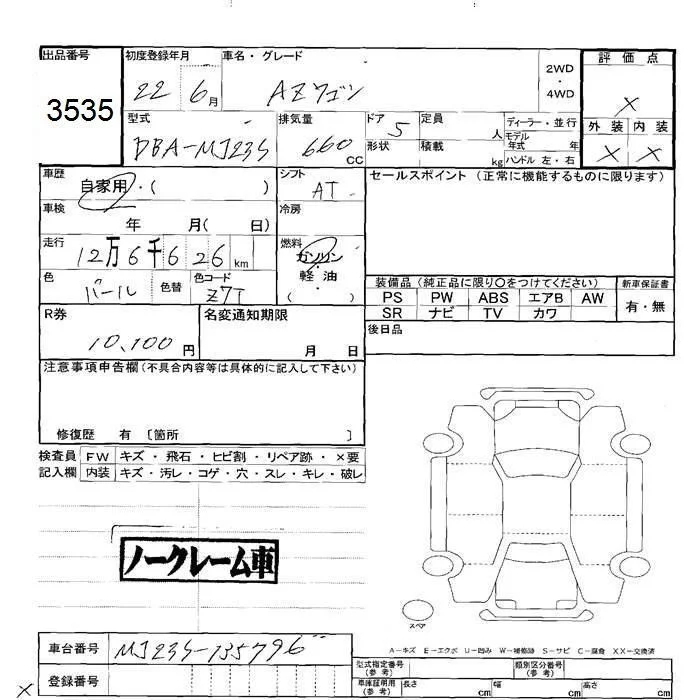 出品番号
3535
初度登録年月
22 6月
車名・グレード
AZワゴン
2WD
・
4WD
評価点
×
外装 内装
× ×
型式
DBA-MJ23S
排気量
660
CC
ドア 5
形状
定員
人
積載
kg
ディーラー・並行
モデル
年式 年
ハンドル 左・右
車歴
自家用・( )
シフト
AT
セールスポイント (正常に機能するものに限ります)
車検
年 月( 日)
冷房
走行
12万6千626km
燃料
ガソリン
軽・油
( )
色
パール
色替
色コード
Z7T
装備品 (純正品に限り○をつけてください)
PS PW ABS エアB AW
SR ナビ TV カワ
新車保証書
有・無
R券
10,100円
名変通知期限
月 日
後日品
注意事項申告欄 (不具合内容等は具体的に記入して下さい)
修復歴 有 〔箇所 〕
検査員 FW キズ・飛石・ヒビ割・リペア跡・×要
記入欄 内装 キズ・汚レ・コゲ・穴・スレ・キレ・破レ
ノークレーム車
スペア
A-キズ E-エクボ U-凹み W-補修跡 S-サビ C-腐食 XX-交換済
車台番号
MJ23S-135796
登録番号
×
型式指定番号
(参考)
類別区分番号
(参考)
車庫証明用
(参考)
長さ cm
幅 cm
高さ cm